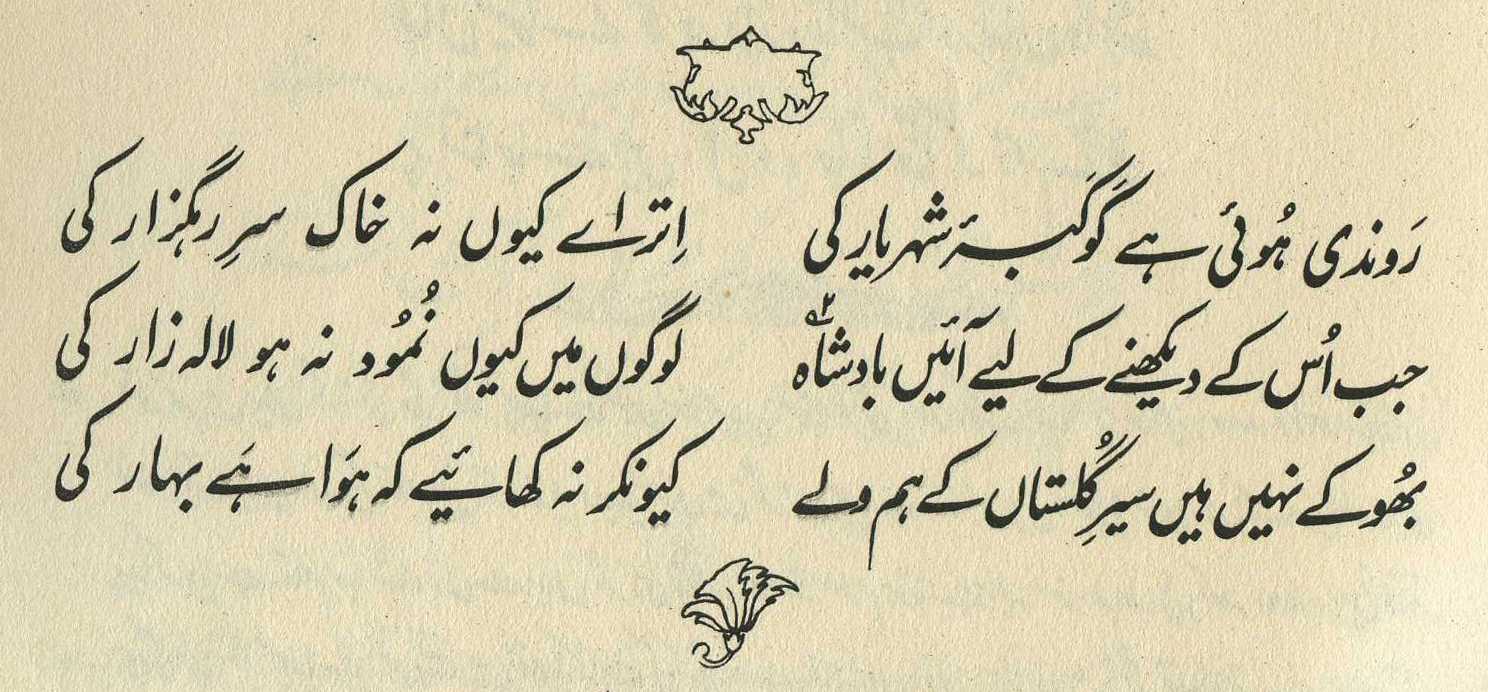 رَوندی ہُوئی ہے کَوکَبۂ شہریار کی اِترائے کیوں نہ خاک سرِ رہگزار کی
جب اُس کے دیکھنے کے لیے آئیں بادشاہ۲ لوگوں میں کیوں نُمُود نہ ہو لالہ زار کی
بھُوکے نہیں ہیں سیرِ گُلستاں کے ہم ولے کیونکر نہ کھائیے کہ ہَوا ہَے بہار کی